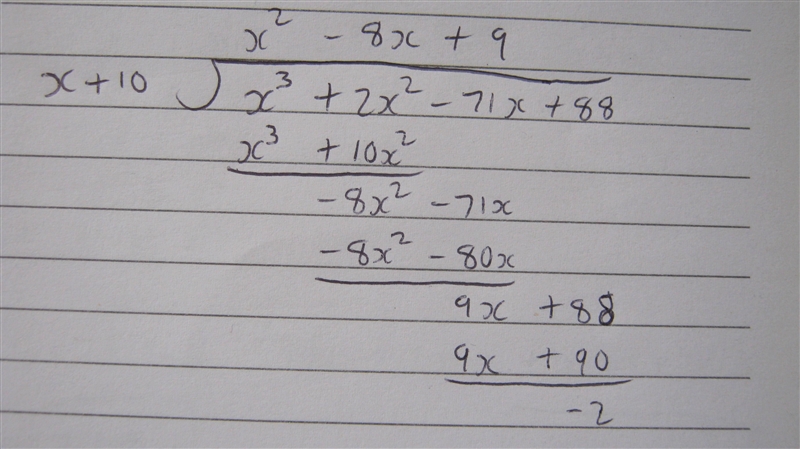 x² - 8x + 9
x + 10 ) x³ + 2x² - 71x + 88
x³ + 10x²
-8x² - 71x
-8x² - 80x
9x + 88
9x + 90
-2